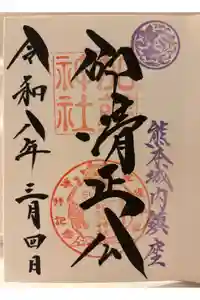 熊本城内鎮座
仰清正公
加藤
神社
令和八年三月四日